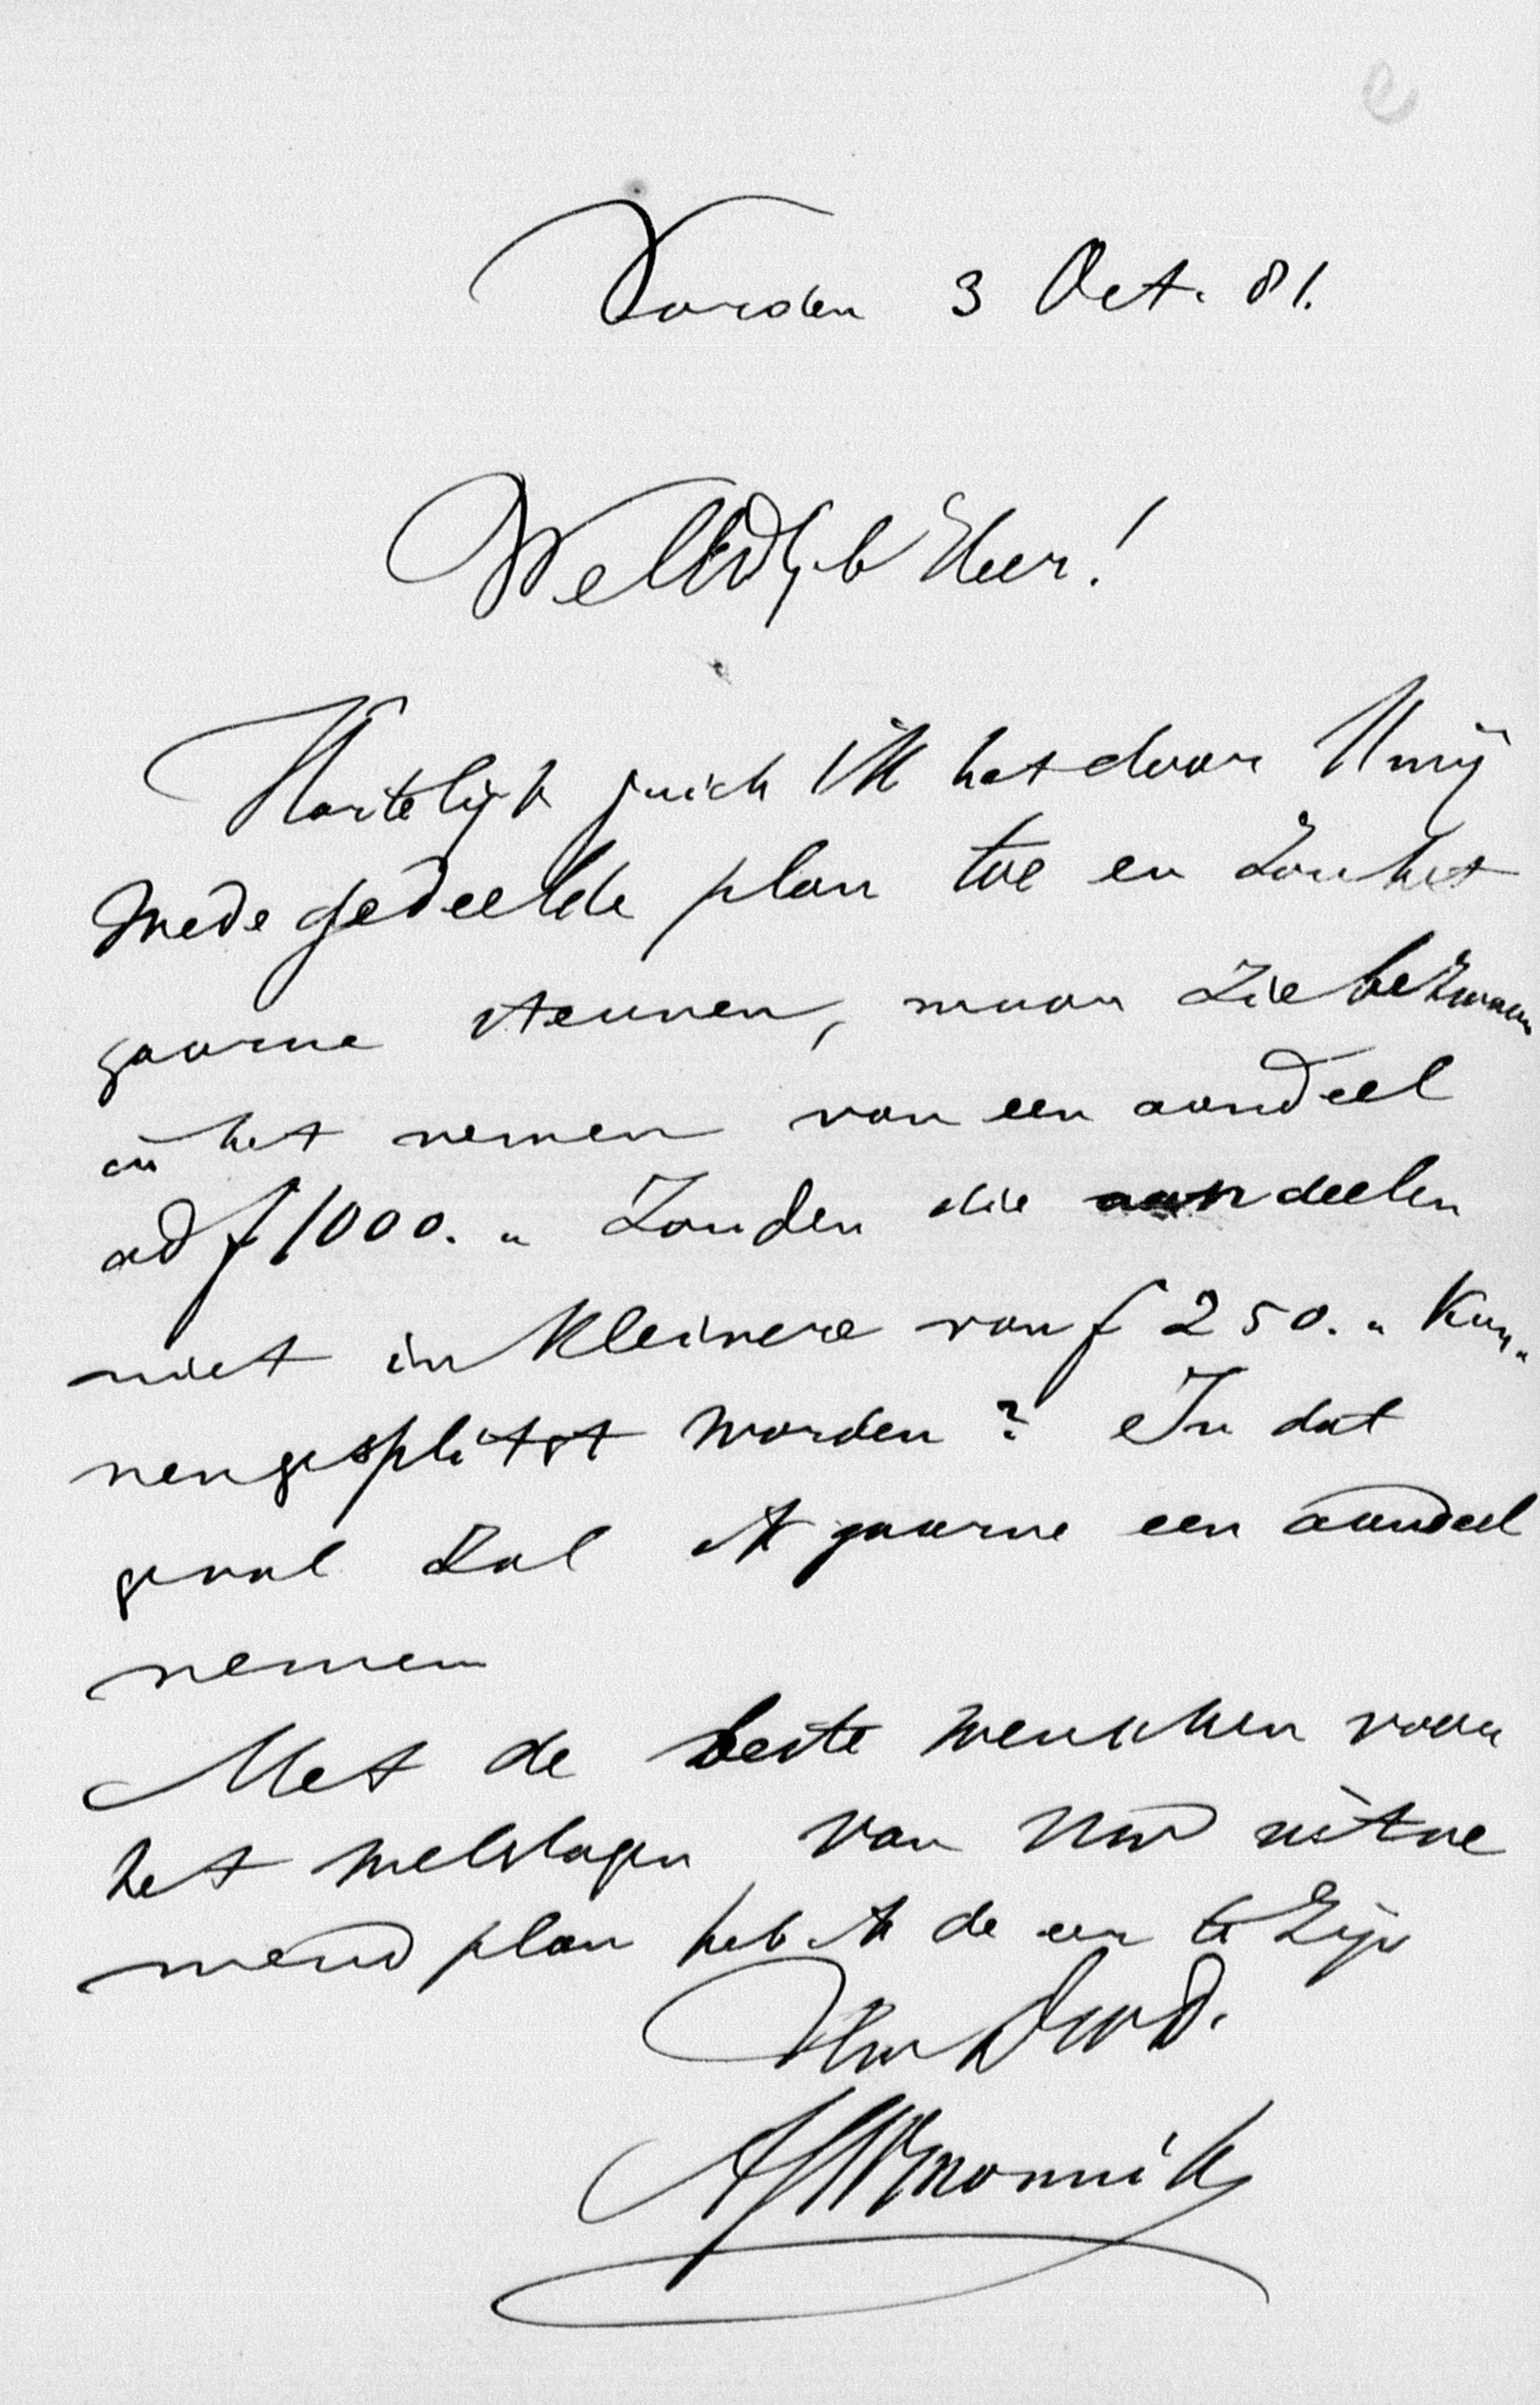 Vorden 3 Oct. 81.
Heer!
Hartelijk juich ik het door U mij
mede gedeelde plan toe en zou het
gaarne steunen, maar zie bezwaar
in het nemen van een aandeel
ad f 1000. „ Zouden die aandeelen
niet in kleinere van f 250. „ kun„
nen gesplitst worden? In dat
geval zal ik gaarne een aandeel
nemen
Met de beste wenschen voor
het welslagen van Uw uitne
mend plan heb ik de eer te zijn
Uw Dwd.